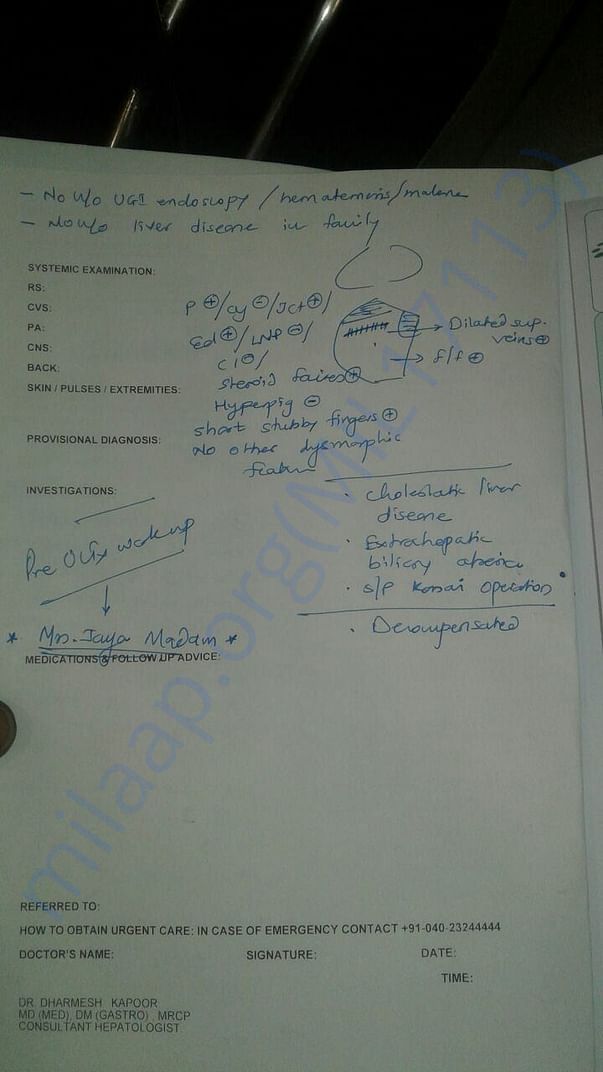 - No H/o UGI endoscopy / hematemesis / malena
- No H/o liver disease in family
SYSTEMIC EXAMINATION:
RS:
CVS:
PA:
CNS:
BACK:
SKIN / PULSES / EXTREMITIES:
P ⊕ / cy ⊖ / Ict ⊕ /
Ed ⊕ / LNP ⊖ /
Cl ⊖ /
steroid facies ⊕
Hyperpig ⊖
short stubby fingers ⊕
No other dysmorphic
feature
→ Dilated sup.
veins ⊕
→ f/f ⊕
PROVISIONAL DIAGNOSIS:
· cholestatic liver
disease
· Extrahepatic
biliary atresia
· s/p Kasai operation
· Decompensated
INVESTIGATIONS:
Pre OLTx workup
* Mrs. Jaya Madam *
MEDICATIONS & FOLLOW UP ADVICE:
REFERRED TO:
HOW TO OBTAIN URGENT CARE: IN CASE OF EMERGENCY CONTACT +91-040-23244444
DOCTOR'S NAME: SIGNATURE: DATE:
TIME:
DR. DHARMESH KAPOOR
MD (MED), DM (GASTRO) , MRCP
CONSULTANT HEPATOLOGIST
milaap.org(MIL17113)